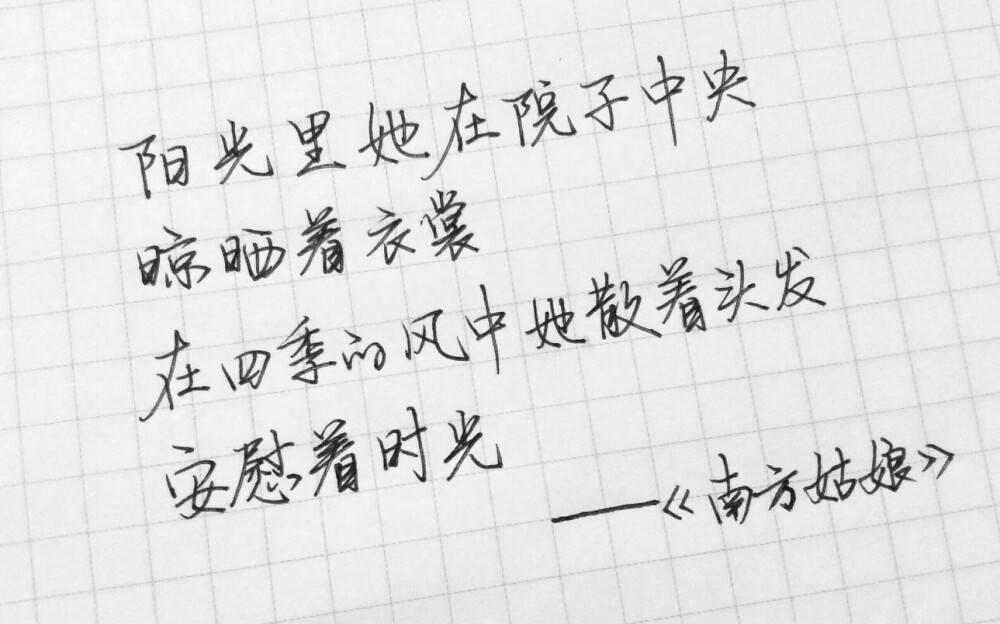 阳光里她在院子中央
晾晒着衣裳
在四季的风中她散着头发
安慰着时光
——《南方姑娘》